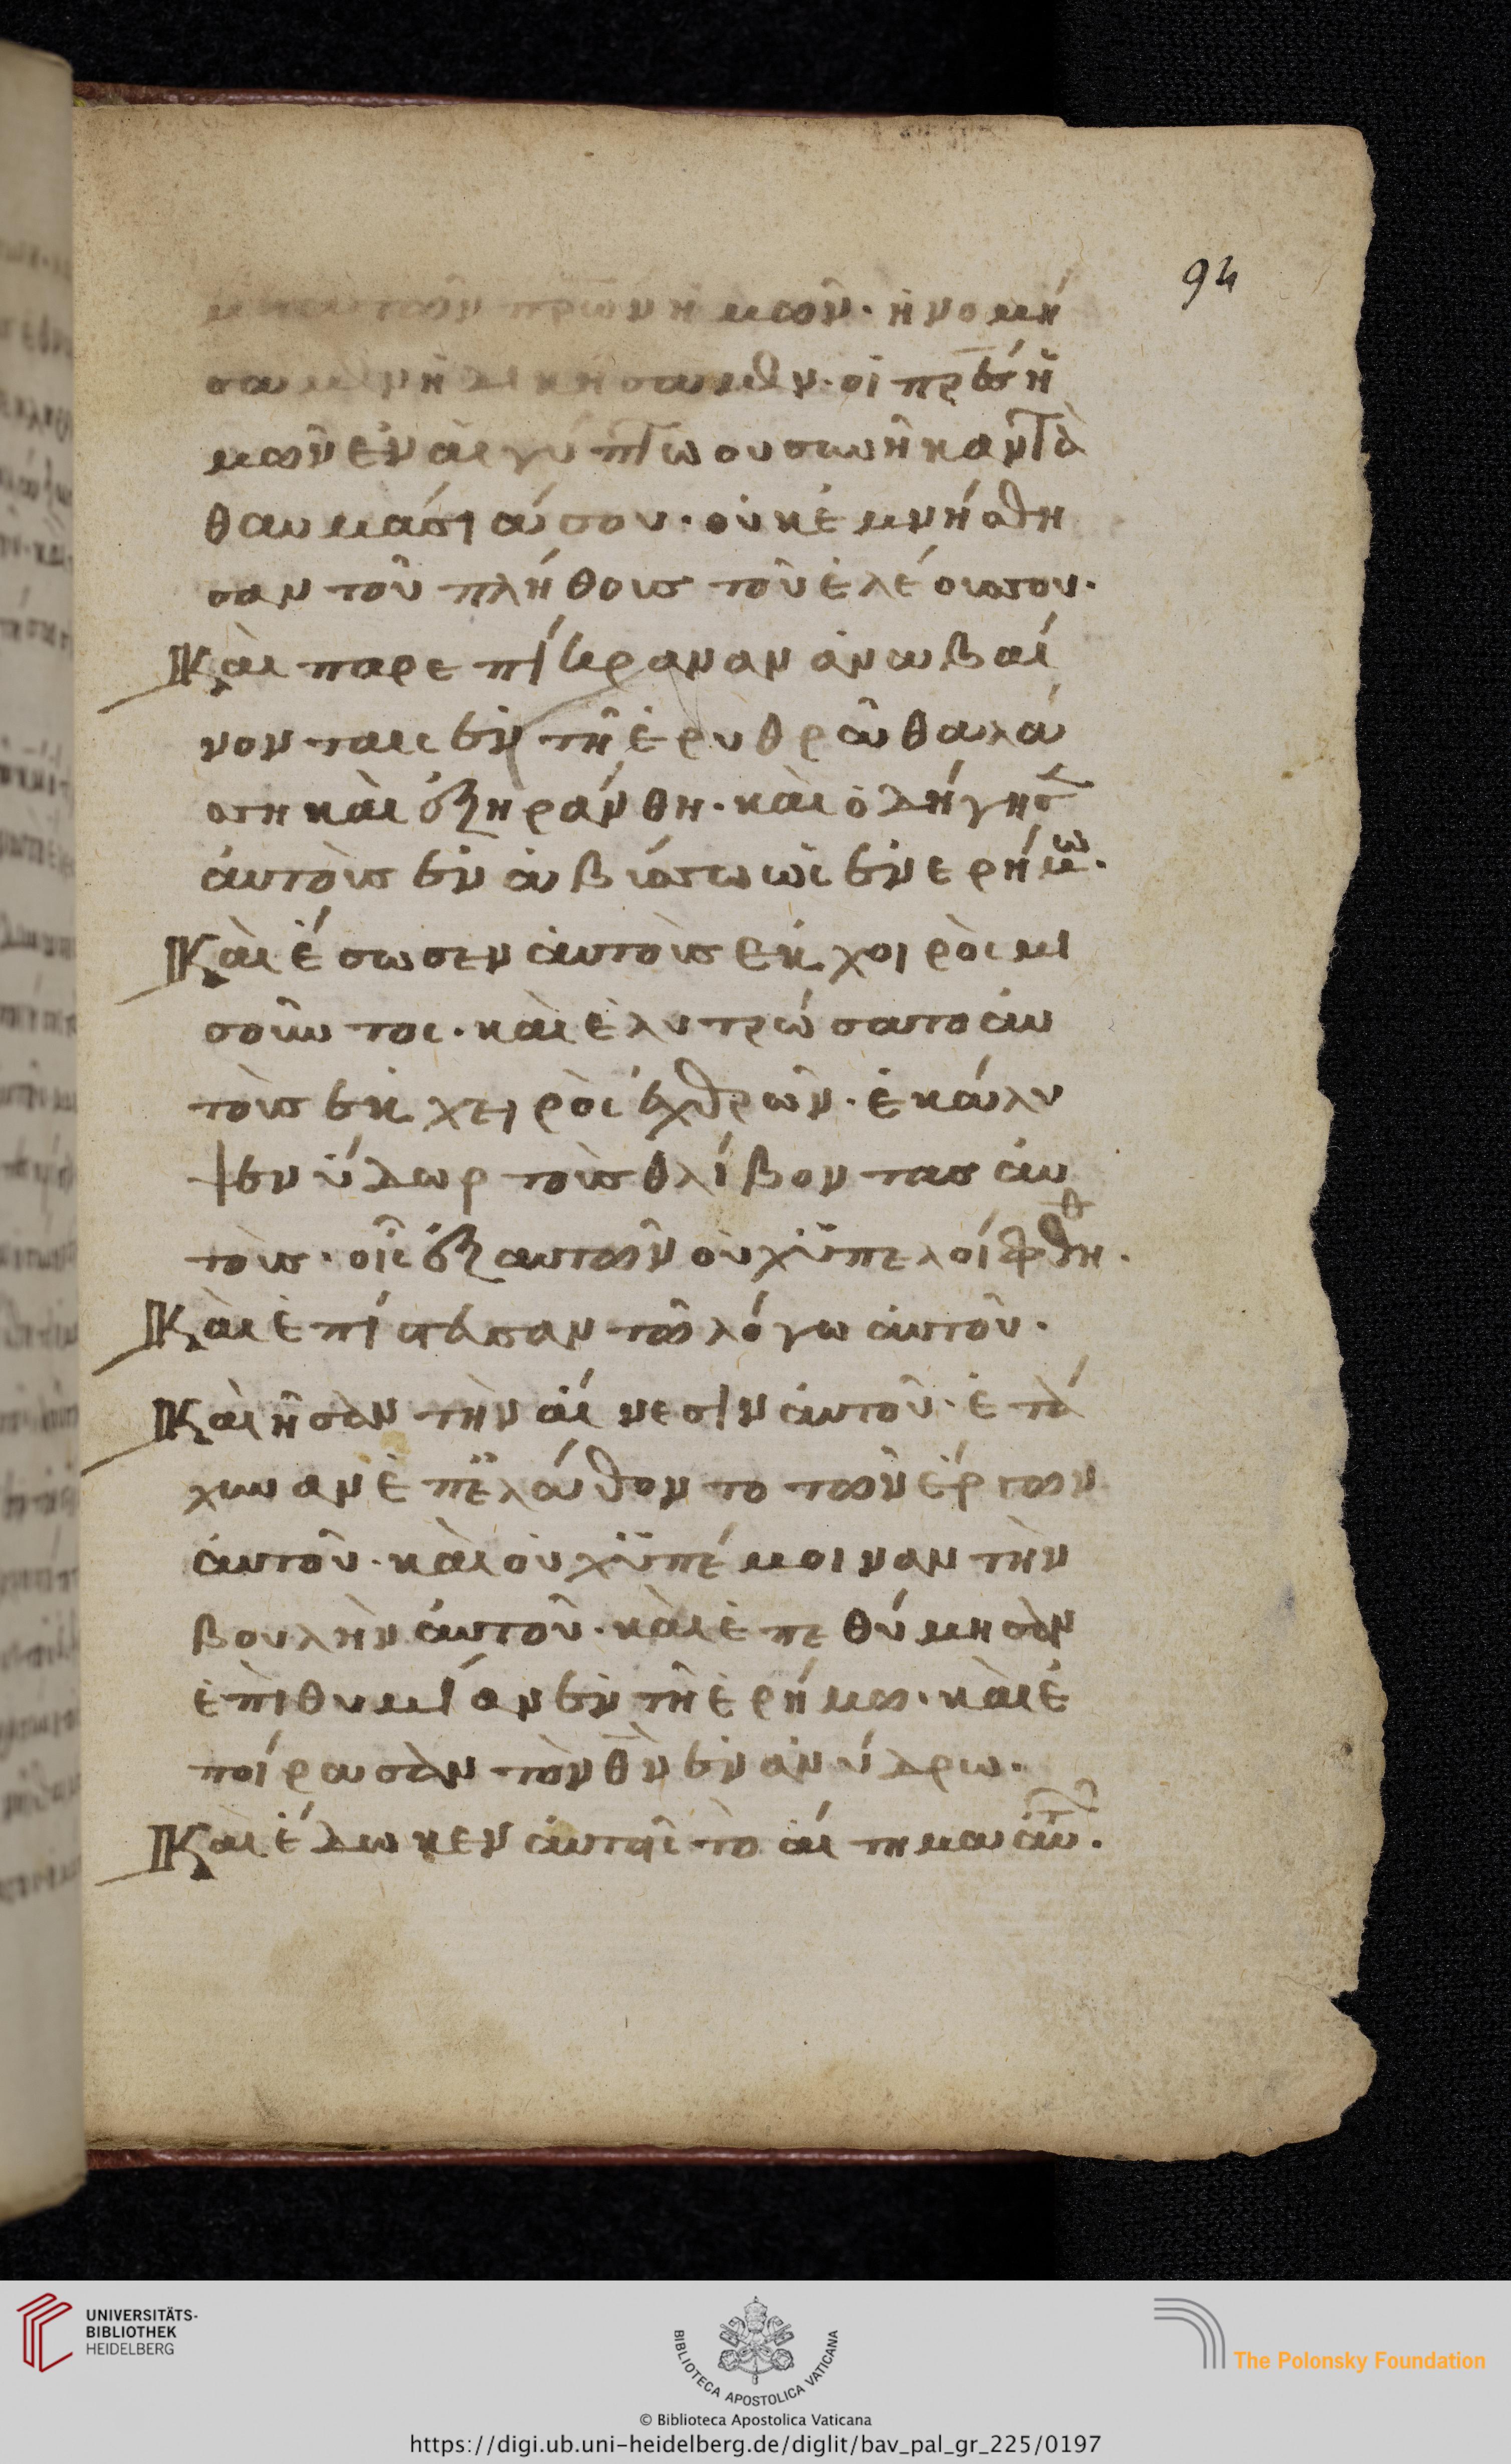 94
μετὰ τῶν πρ̅ων ἡμῶν· ἠνομή
σαμεν ἠδικήσαμεν· οἱ πρ̅ες ἡ
μῶν ἐν αἰγύπτω ου συνῆκαν τὰ
θαυμάσιά σου· οὐκ ἐμνήσθη
σαν τοῦ πλήθους τοῦ ἐλέους σου·
Καὶ παρεπίκραναν ἀναβαί
νοντες ἐν τῆ ἐρυθρᾶ θαλά
σση καὶ ἐξηράνθη· καὶ ὁδήγησεν
αὐτοὺς ἐν ἀβύσσω ὡς ἐν ερήμω·
Καὶ ἔσωσεν αὐτοὺς ἐκ χειρὸς μι
σοῦντος· καὶ ελυτρώσατο αὐ
τοὺς ἐκ χειρὸς ἐχθρῶν· ἐκάλυ
ψεν ὕδωρ τοὺς θλίβοντας αὐ
τούς· εἷς ἐξ αυτῶν οὐχ ὑπελείφθη·
Καὶ ἐπίστευσαν τῶ λόγω αὐτοῦ·
Καὶ ἦσαν τὴν αἴνεσιν αὐτοῦ· ἐτά
χυναν ἐπελάθοντο τῶν έργων
αὐτοῦ· καὶ οὐχ ὑπέμειναν τὴν
βουλὴν αὐτοῦ· καὶ ἐπεθύμησαν
ἐπιθυμίαν ἐν τῆ ἐρήμω· καὶ ἐ
πείρασαν τὸν θ̅ν ἐν ἀνύδρω·
Καὶ ἔδωκεν αὐτοῖς τὸ αἴτημα αὐτῶν·
UNIVERSITÄTS-
BIBLIOTHEK
HEIDELBERG
BIBLIOTECA APOSTOLICA VATICANA
The Polonsky Foundation
© Biblioteca Apostolica Vaticana
https://digi.ub.uni-heidelberg.de/diglit/bav_pal_gr_225/0197